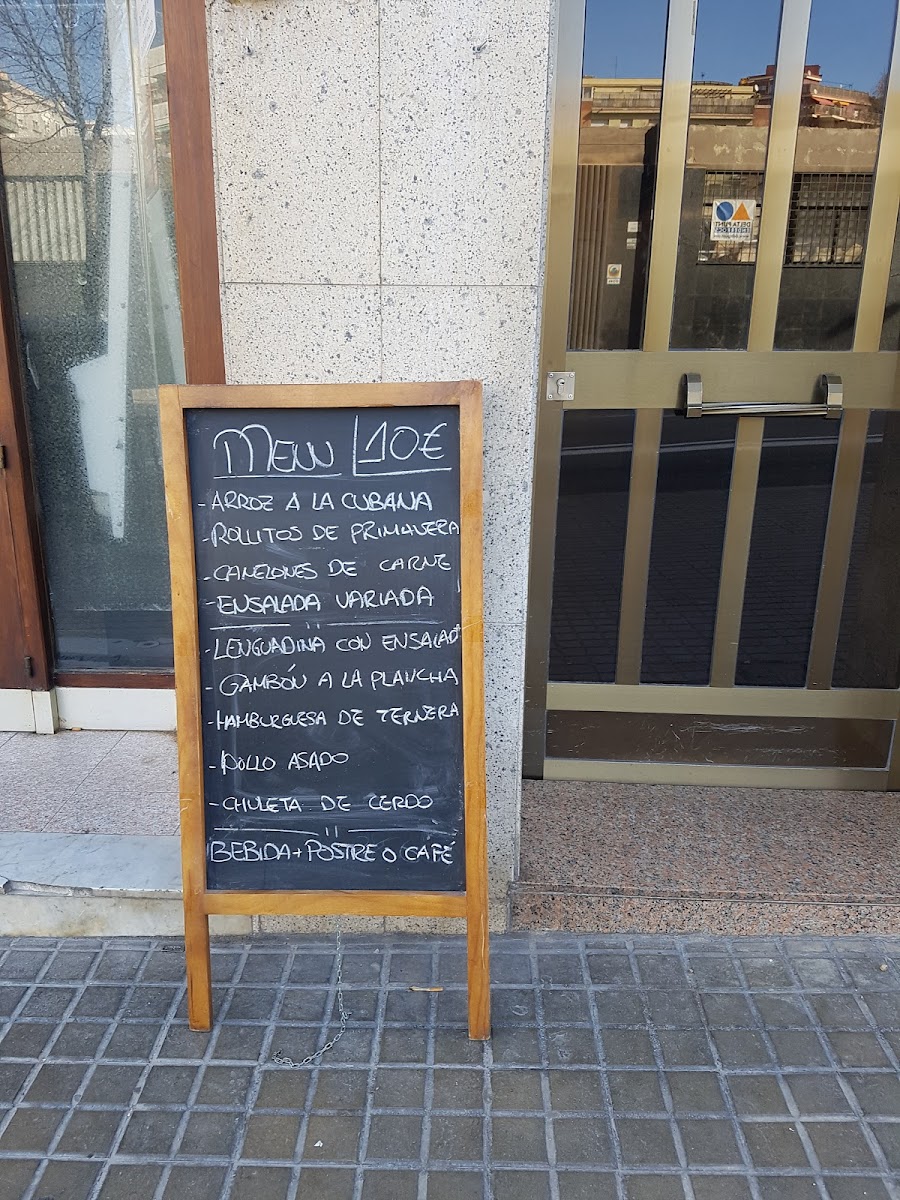 MENU 10€
- ARROZ A LA CUBANA
- ROLLITOS DE PRIMAVERA
- CANELONES DE CARNE
- ENSALADA VARIADA
- LENGUADINA CON ENSALADA
- GAMBÓN A LA PLANCHA
- HAMBURGUESA DE TERNERA
- POLLO ASADO
- CHULETA DE CERDO
BEBIDA + POSTRE O CAFÉ
DELTA PUNT